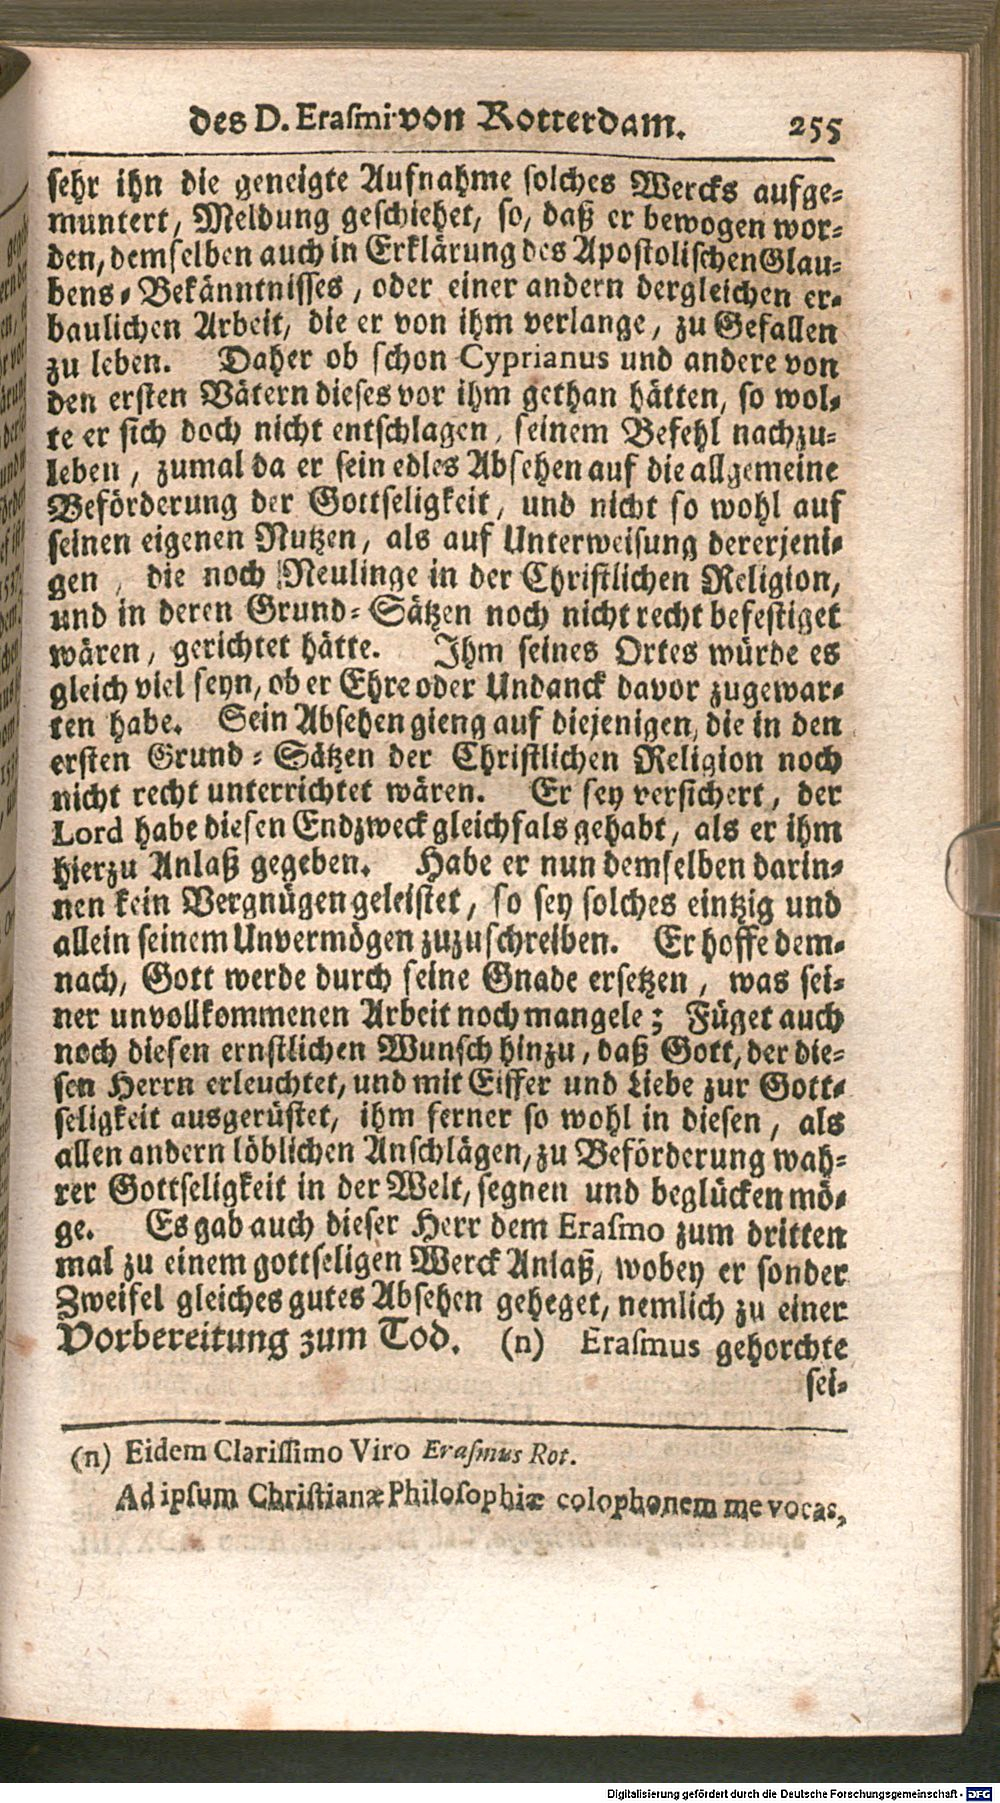 des D. Erasmi von Rotterdam. 255
sehr ihn die geneigte Aufnahme solches Wercks aufge-
muntert, Meldung geschiehet, so, daß er bewogen wor-
den, demselben auch in Erklärung des Apostolischen Glau-
bens-Bekänntnisses, oder einer andern dergleichen er-
baulichen Arbeit, die er von ihm verlange, zu Gefallen
zu leben. Daher ob schon Cyprianus und andere von
den ersten Vätern dieses vor ihm gethan hätten, so wol-
te er sich doch nicht entschlagen, seinem Befehl nachzu-
leben, zumal da er sein edles Absehen auf die allgemeine
Beförderung der Gottseligkeit, und nicht so wohl auf
seinen eigenen Nutzen, als auf Unterweisung dererjeni-
gen, die noch Neulinge in der Christlichen Religion,
und in deren Grund-Sätzen noch nicht recht befestiget
wären, gerichtet hätte. Ihm seines Ortes würde es
gleich viel seyn, ob er Ehre oder Undanck davor zugewar-
ten habe. Sein Absehen gieng auf diejenigen, die in den
ersten Grund-Sätzen der Christlichen Religion noch
nicht recht unterrichtet wären. Er sey versichert, der
Lord habe diesen Endzweck gleichfals gehabt, als er ihm
hierzu Anlaß gegeben. Habe er nun demselben darin-
nen kein Vergnügen geleistet, so sey solches eintzig und
allein seinem Unvermögen zuzuschreiben. Er hoffe dem-
nach, Gott werde durch seine Gnade ersetzen, was sei-
ner unvollkommenen Arbeit noch mangele; Füget auch
noch diesen ernstlichen Wunsch hinzu, daß Gott, der die-
sen Herrn erleuchtet, und mit Eiffer und Liebe zur Gott-
seligkeit ausgerüstet, ihm ferner so wohl in diesen, als
allen andern löblichen Anschlägen, zu Beförderung wah-
rer Gottseligkeit in der Welt, segnen und beglücken mö-
ge. Es gab auch dieser Herr dem Erasmo zum dritten
mal zu einem gottseligen Werck Anlaß, wobey er sonder
Zweifel gleiches gutes Absehen geheget, nemlich zu einer
Vorbereitung zum Tod. (n) Erasmus gehorchte
sei-
(n) Eidem Clarissimo Viro Erasmus Rot.
Ad ipsum Christianæ Philosophiæ colophonem me vocas,
Digitalisierung gefördert durch die Deutsche Forschungsgemeinschaft - DFG